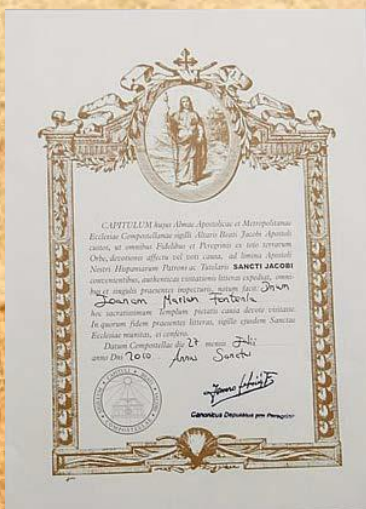 CAPITULUM hujus Almae Apostolicae et Metropolitanae
Ecclesiae Compostellanae sigilli Altaris Beati Jacobi Apostoli
custos, ut omnibus Fidelibus et Peregrinis ex toto terrarum
Orbe, devotionis affectu vel voti causa, ad limina Apostoli
Nostri Hispaniarum Patroni ac Tutelaris SANCTI JACOBI
convenientibus, authenticas visitationis litteras expediat, omni-
bus et singulis praesentes inspecturis, notum facit: Dnum
Joanem Mariam Fontenla
hoc sacratissimum Templum pietatis causa devote visitasse.
In quorum fidem praesentes litteras, sigillo ejusdem Sanctae
Ecclesiae munitas, ei confero.
Datum Compostellae die 27 mensis Julii
anno Dni 2010 Annus Sanctus
Canonicus Deputatus pro Peregrinis